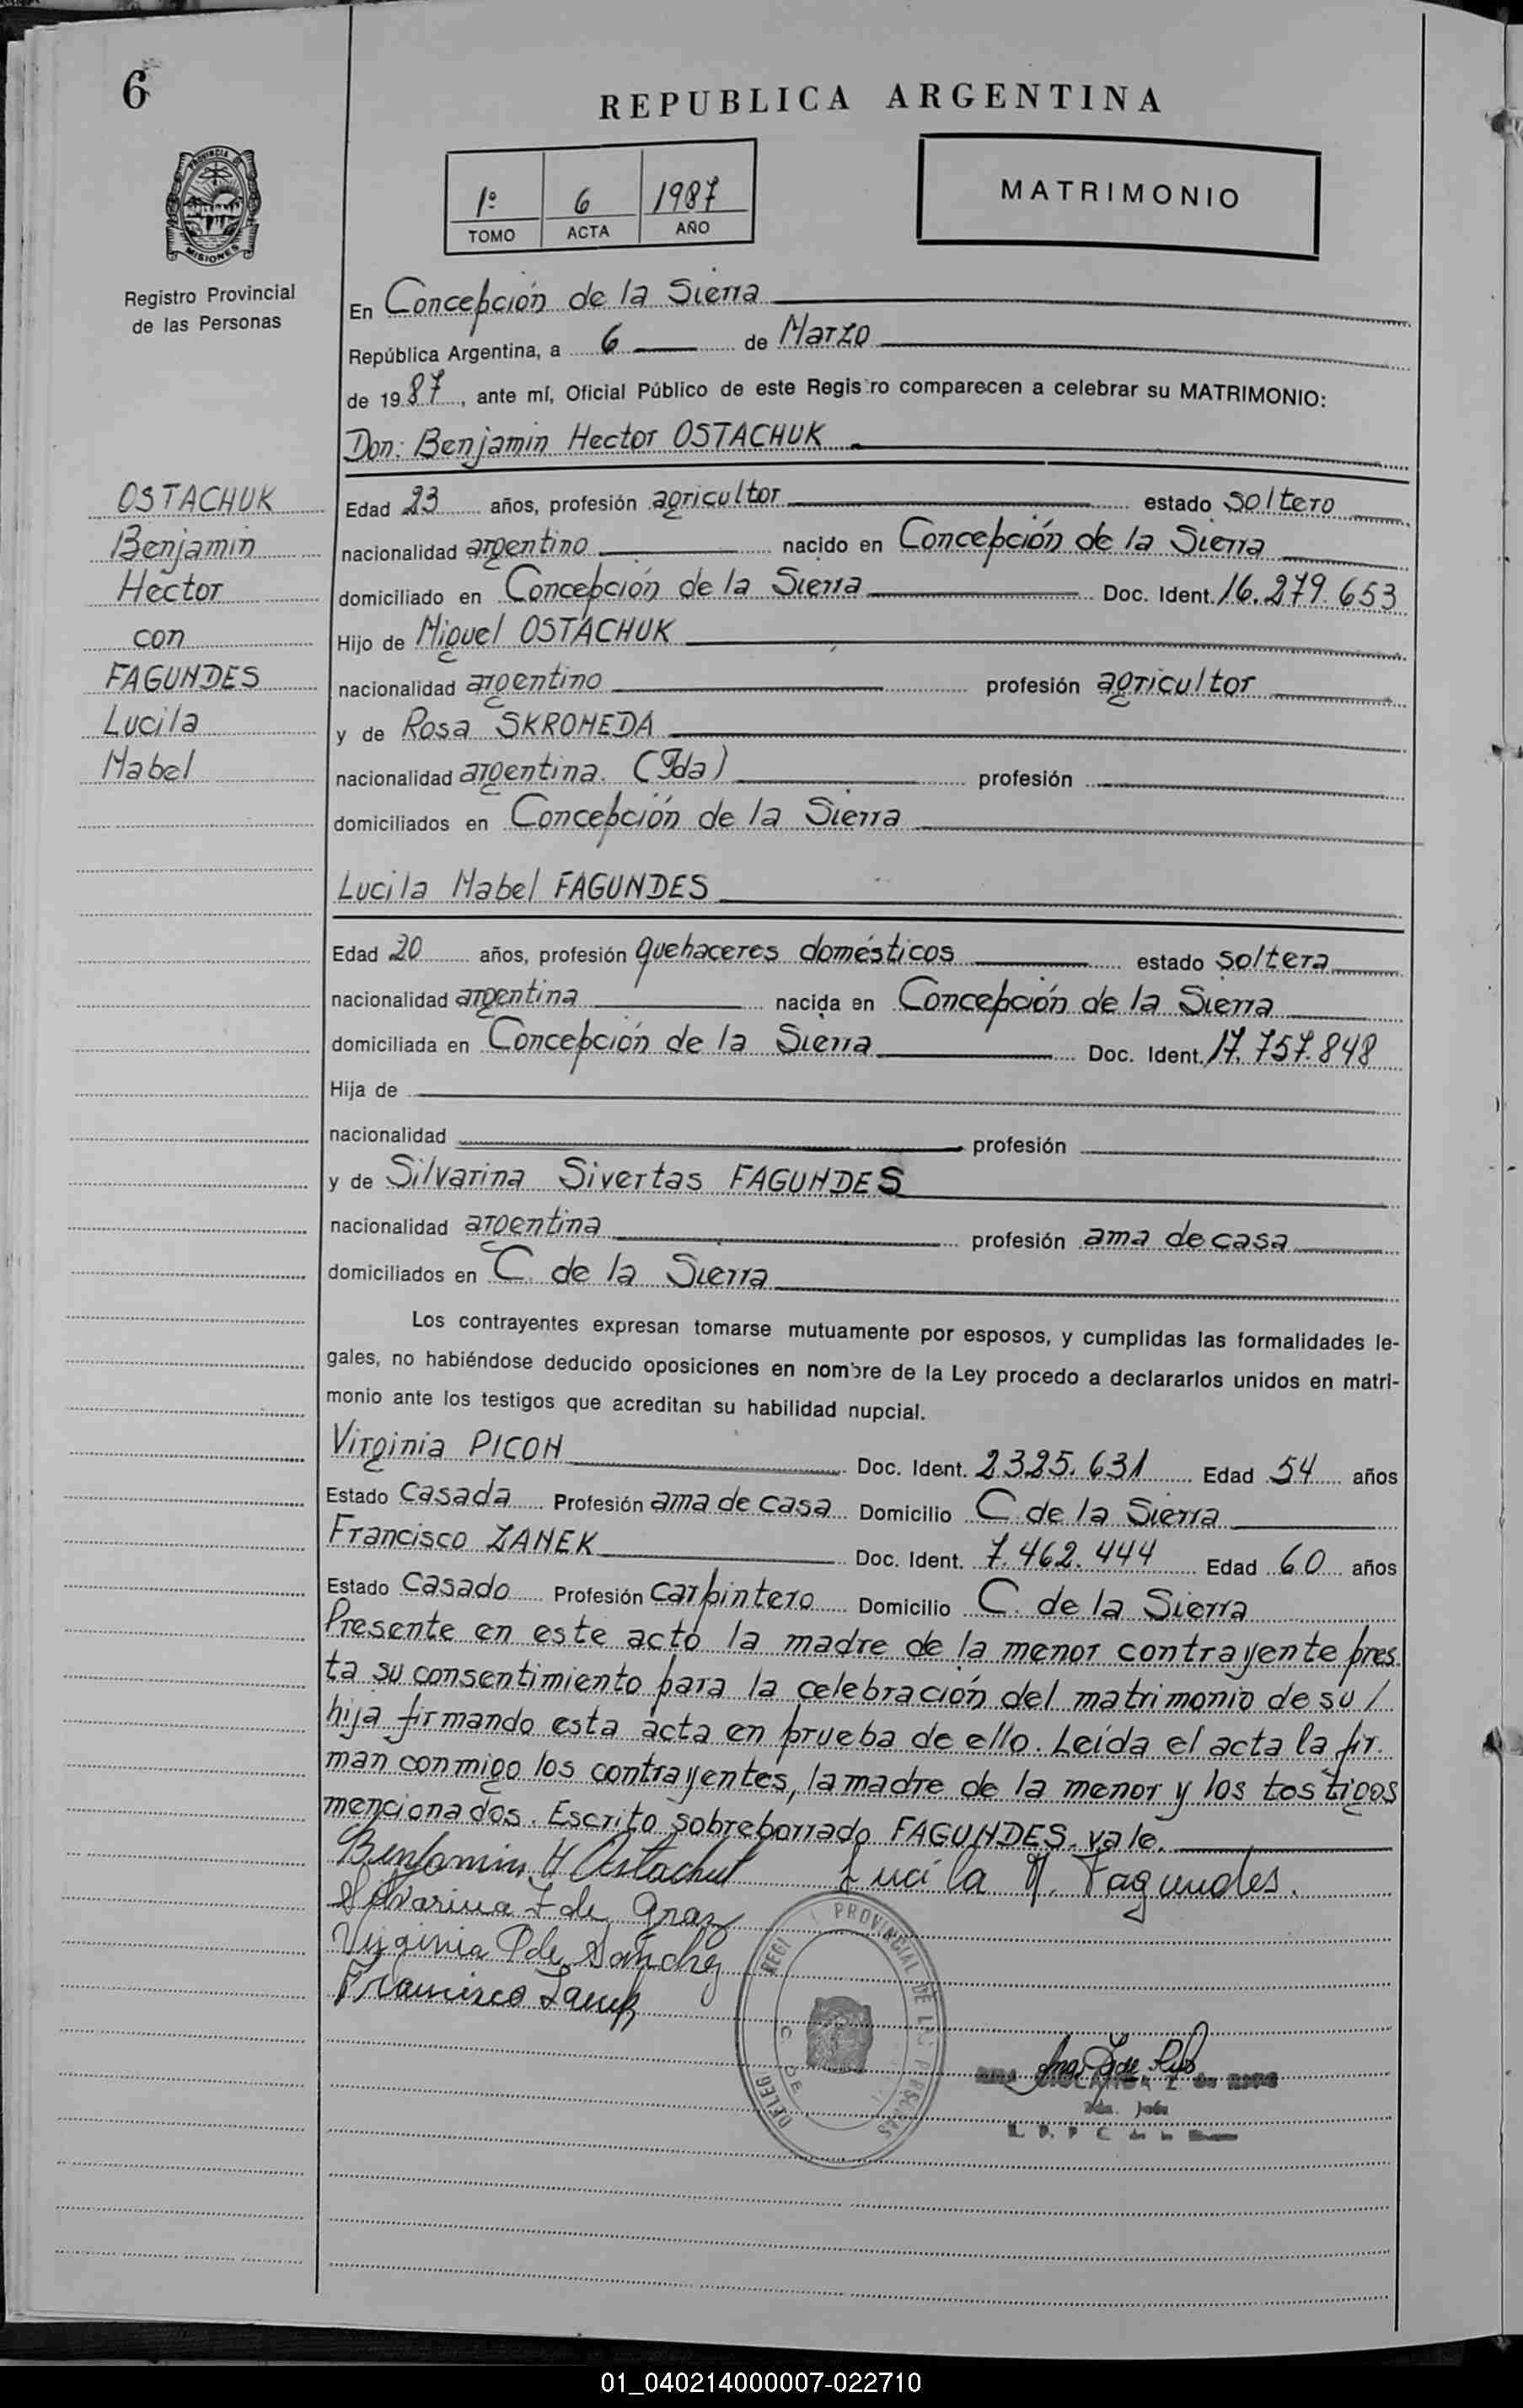 6
REPUBLICA ARGENTINA
PROVINCIA DE
MISIONES
Registro Provincial
de las Personas
1º 6 1987
TOMO ACTA AÑO
MATRIMONIO
En Concepción de la Sierra
República Argentina, a 6 de Marzo
de 1987, ante mí, Oficial Público de este Registro comparecen a celebrar su MATRIMONIO:
Don: Benjamin Hector OSTACHUK
OSTACHUK
Benjamin
Hector
con
FAGUNDES
Lucila
Mabel
Edad 23 años, profesión agricultor estado soltero
nacionalidad argentino nacido en Concepción de la Sierra
domiciliado en Concepción de la Sierra Doc. Ident. 16.279.653
Hijo de Miguel OSTACHUK
nacionalidad argentino profesión agricultor
y de Rosa SKROMEDA
nacionalidad argentina. (Fda) profesión
domiciliados en Concepción de la Sierra
Lucila Mabel FAGUNDES
Edad 20 años, profesión quehaceres domésticos estado soltera
nacionalidad argentina nacida en Concepción de la Sierra
domiciliada en Concepción de la Sierra Doc. Ident. 17.757.848
Hija de
nacionalidad profesión
y de Silvarina Sivertas FAGUNDES
nacionalidad argentina profesión ama de casa
domiciliados en C. de la Sierra
Los contrayentes expresan tomarse mutuamente por esposos, y cumplidas las formalidades le-
gales, no habiéndose deducido oposiciones en nombre de la Ley procedo a declararlos unidos en matri-
monio ante los testigos que acreditan su habilidad nupcial.
Virginia PICON Doc. Ident. 2325.631 Edad 54 años
Estado Casada Profesión ama de casa Domicilio C. de la Sierra
Francisco ZANEK Doc. Ident. 7.462.444 Edad 60 años
Estado Casado Profesión carpintero Domicilio C. de la Sierra
Presente en este acto la madre de la menor contrayente pres
ta su consentimiento para la celebración del matrimonio de su /
hija firmando esta acta en prueba de ello. Leída el acta la fir-
man conmigo los contrayentes, la madre de la menor y los testigos
mencionados. Escrito sobreborrado FAGUNDES. vale.
Benjamin H Ostachuk Lucila M. Fagundes.
Silvarina F de Graz
Virginia P de Sanchez
Francisco Zanek
REGI PROVINCIAL DE LAS PERSONAS
DELEG C. DE
2da. Jefe
01_040214000007-022710